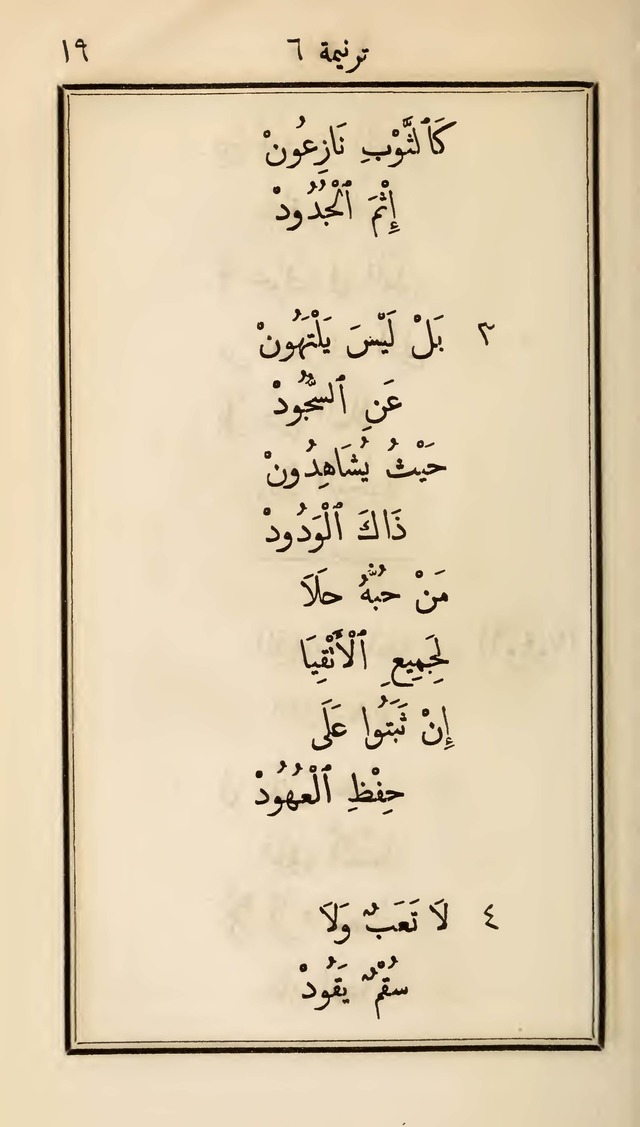 ترنيمة ٦ ١٩
كَٱلثَّوْبِ نَازِعُونْ
إِثْمَ ٱلْجُدُودْ
٣ بَلْ لَيْسَ يَلْتَهُونْ
عَنِ ٱلسُّجُودْ
حَيْثُ يُشَاهِدُونْ
ذَاكَ ٱلْوَدُودْ
مَنْ حُبُّهُ حَلَا
لِجَمِيعِ ٱلْأَتْقِيَا
إِنْ ثَبَتُوا عَلَى
حِفْظِ ٱلْعُهُودْ
٤ لَا تَعَبٌ وَلَا
سُقْمٌ يَقُودْ